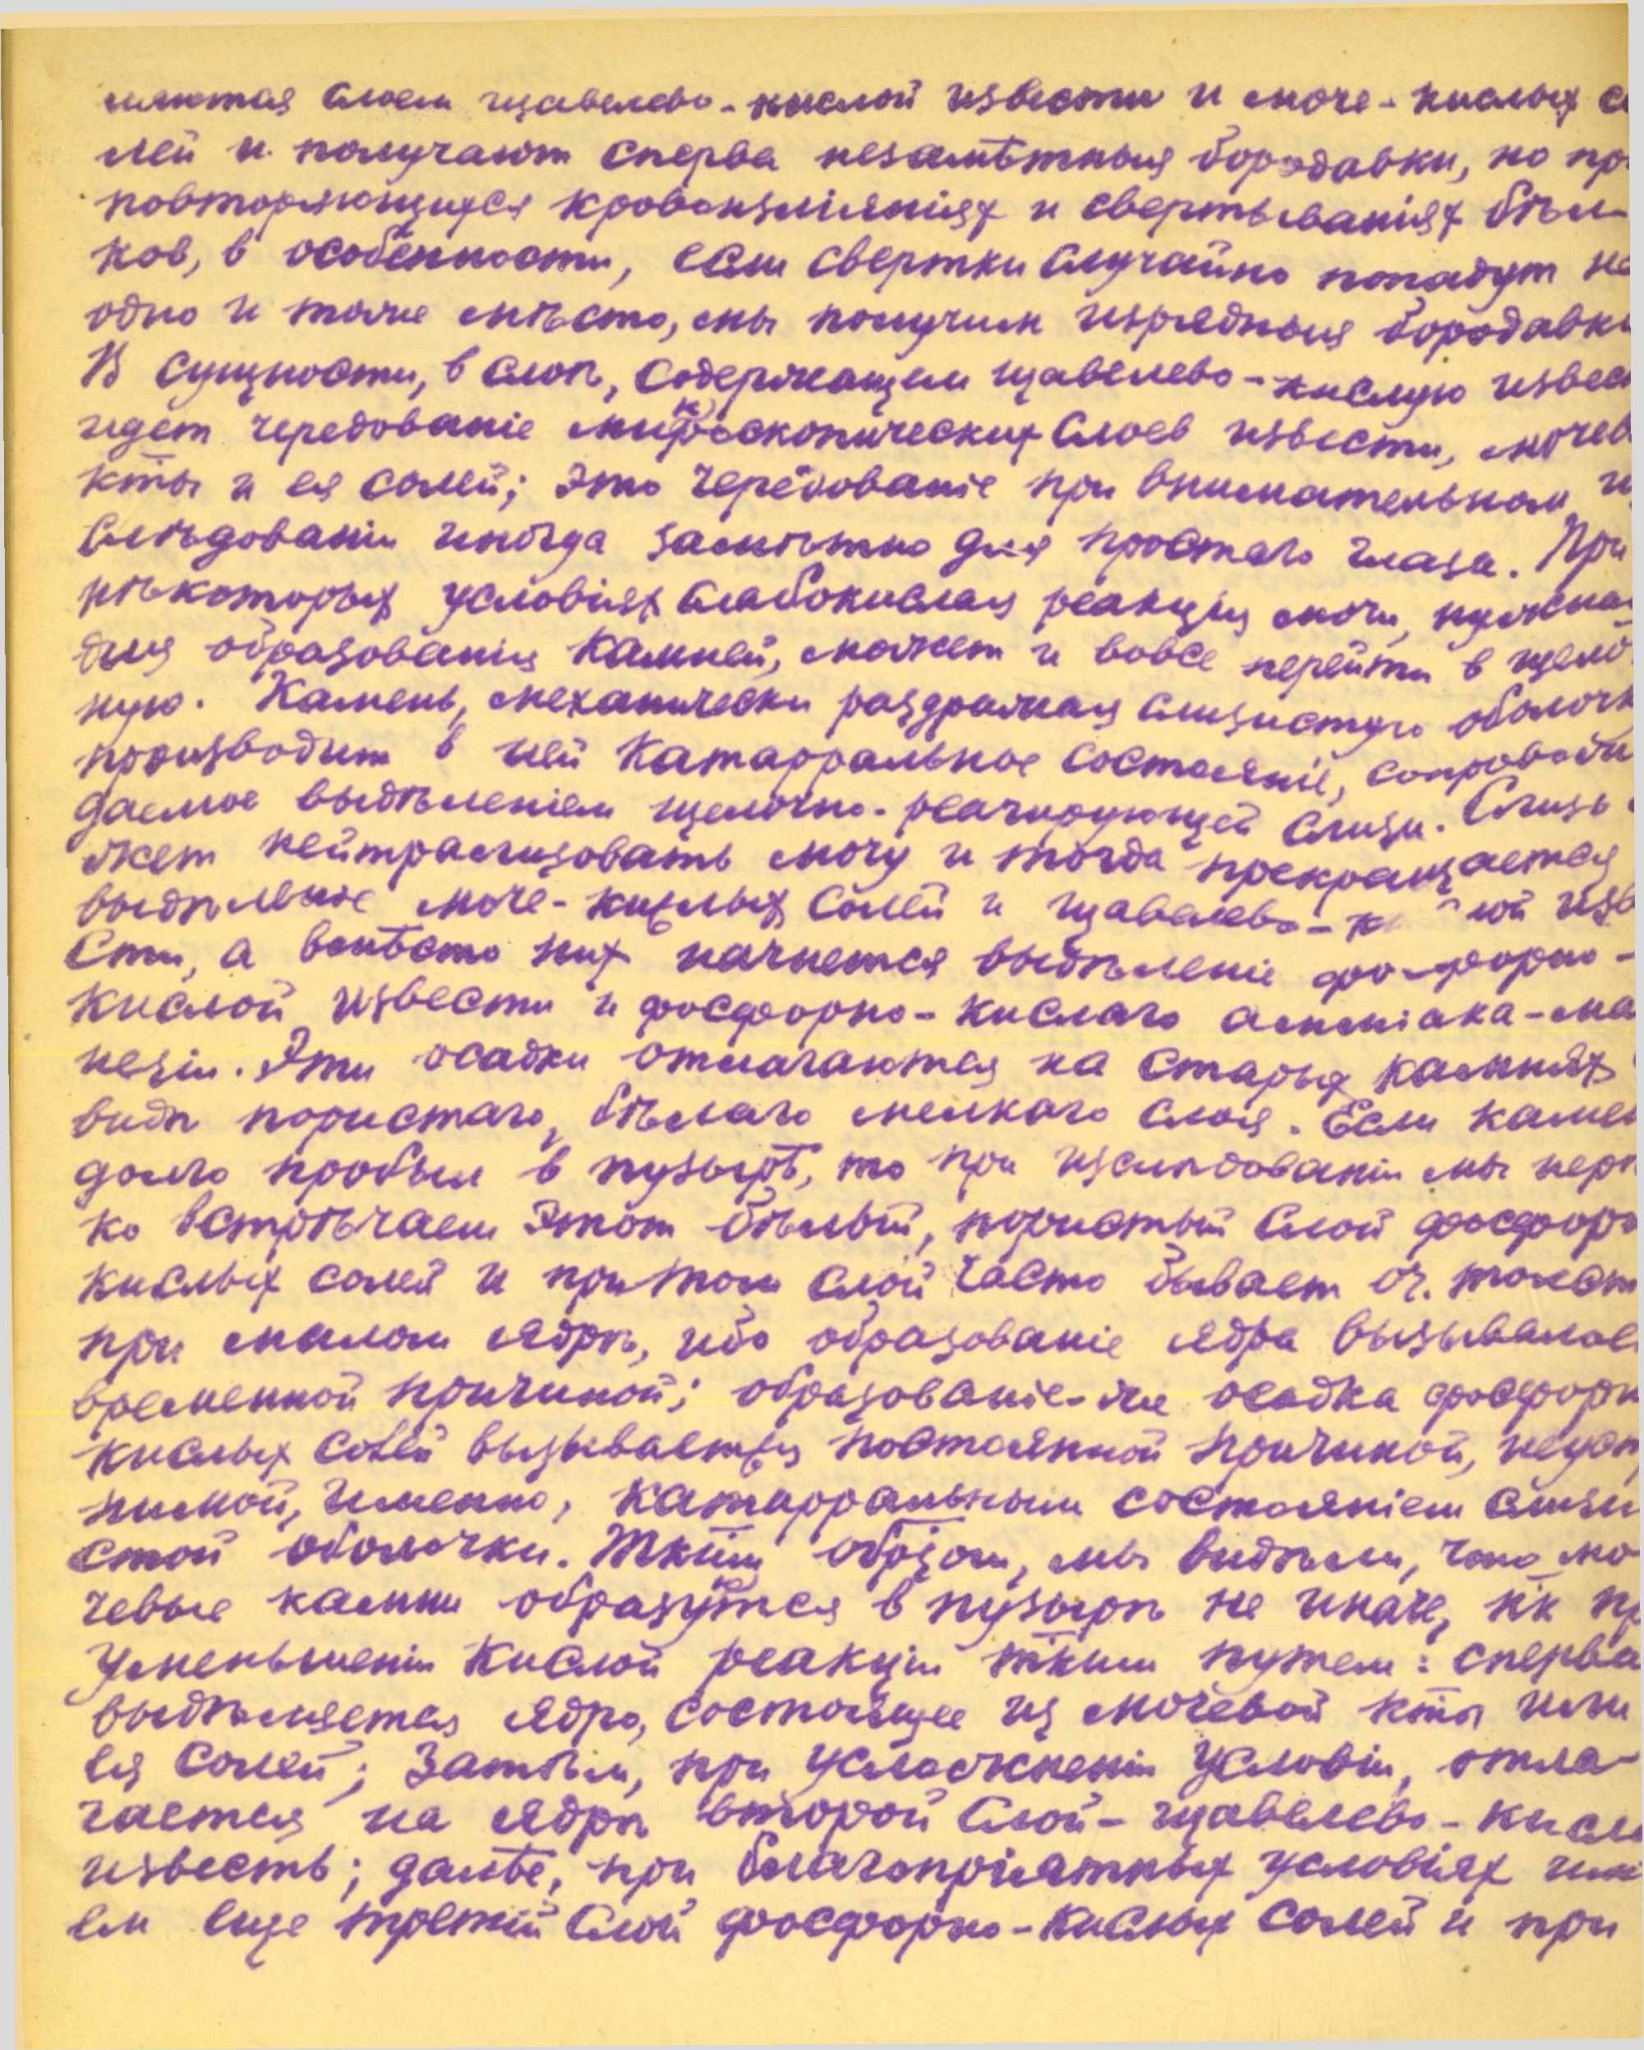 ляются слоем щавелево-кислой извести и моче-кислых со
лей и получают сперва незамѣтныя бородавки, но при
повторяющихся кровоизліяніях и свертываніях бѣл-
ков, в особенности, если свертки случайно попадут на
одно и тоже мѣсто, мы получим изрядныя бородавки
В сущности, в слоѣ, содержащем щавелево-кислую извес
идет чередованіе микроскопических слоев извести, мочев
кты и ея солей; это чередованіе при внимательном и
слѣдованіи иногда замѣтно для простого глаза. При
нѣкоторых условіях слабокислая реакція мочи, нужная
для образованія камней, может и вовсе перейти в щелоч
ную. Камень, механически раздражая слизистую оболочк
производит в ней катарральное состояніе, сопровож
даемое выдѣленіем щелочно-реагирующей слизи. Слизь
жет нейтрализовать мочу и тогда прекращается
выдѣленіе моче-кислых солей и щавелево-к лой изв
сти, а вмѣсто них начнется выдѣленіе фосфорно-
кислой извести и фосфорно-кислаго амміака-ма
незіи. Эти осадки отлагаются на старых камнях
видѣ пористаго, бѣлаго мелкаго слоя. Если камен
долго пробыл в пузырѣ, то при изслѣдованіи мы нерѣ
ко встрѣчаем этот бѣлый, пористый слой фосфор
кислых солей и притом слой часто бывает оч. толст
при малом ядрѣ, ибо образованіе ядра вызывалос
временной причиной; образованіе-же осадка фосфорн
кислых солей вызывается постоянной причиной, неуст
нимой, именно, катарральным состояніем слизи
стой оболочки. Ткім обрзом, мы видѣли, что мо
чевые камни образуются в пузырѣ не иначе, кк пр
уменьшеніи кислой реакціи тким путем: сперва
выдѣляется ядро, состоящее из мочевой кты или
ея солей; затѣм, при усложненіи условіи, отла-
гается на ядрѣ второй слой- щавелево-кисл
известь; далѣе, при благопріятных условіях име
ем еще третій слой фосфорно-кислых солей и при